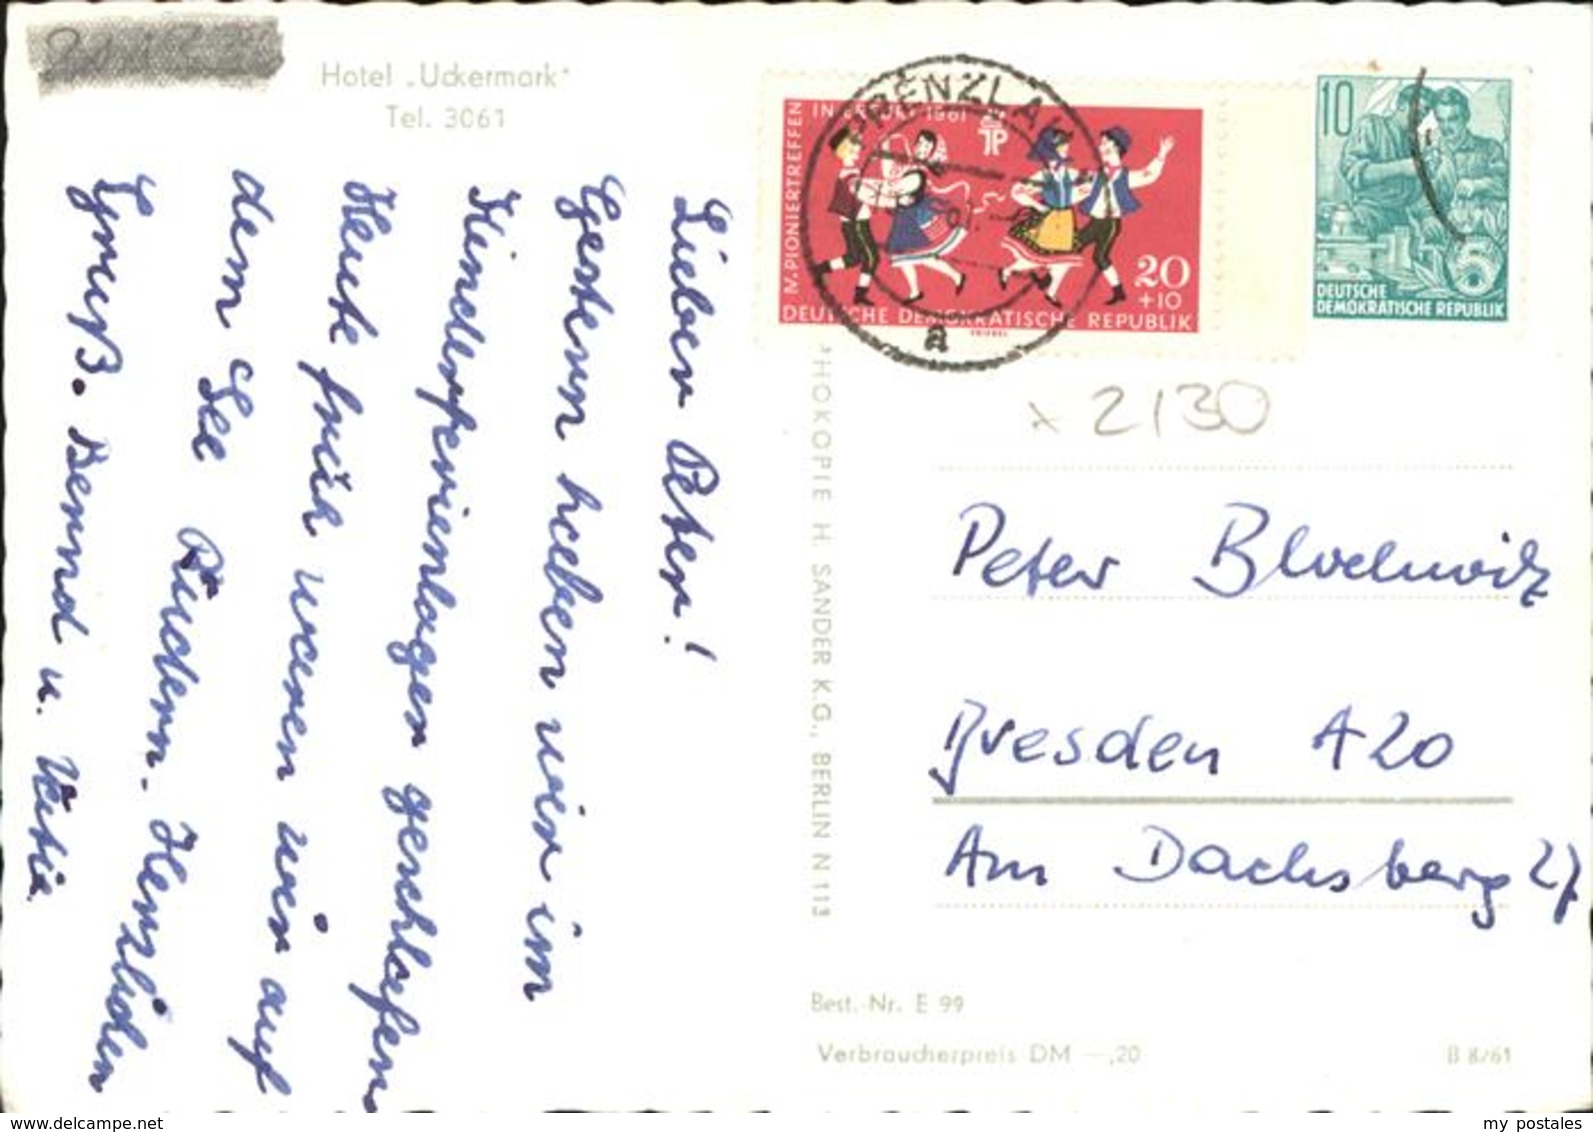 Hotel „Uckermark"
Tel. 3061
Lieber Peter!
Gestern haben wir im
Kinderferienlager geschlafen
Heute früh waren wir auf
dem See Rudern. Herzlichen
Gruß. Bernd u.
PRENZLAU
a
IV. PIONIERTREFFEN
IN ERFURT 1961
JP
20
+10
DEUTSCHE DEMOKRATISCHE REPUBLIK
10
5
DEUTSCHE
DEMOKRATISCHE REPUBLIK
x 2130
PHOKOPIE H. SANDER K.G., BERLIN N 113
Peter
Dresden A20
Am Dachsberg 27
Best.-Nr. E 99
Verbraucherpreis DM —,20
B 8/61
my postales